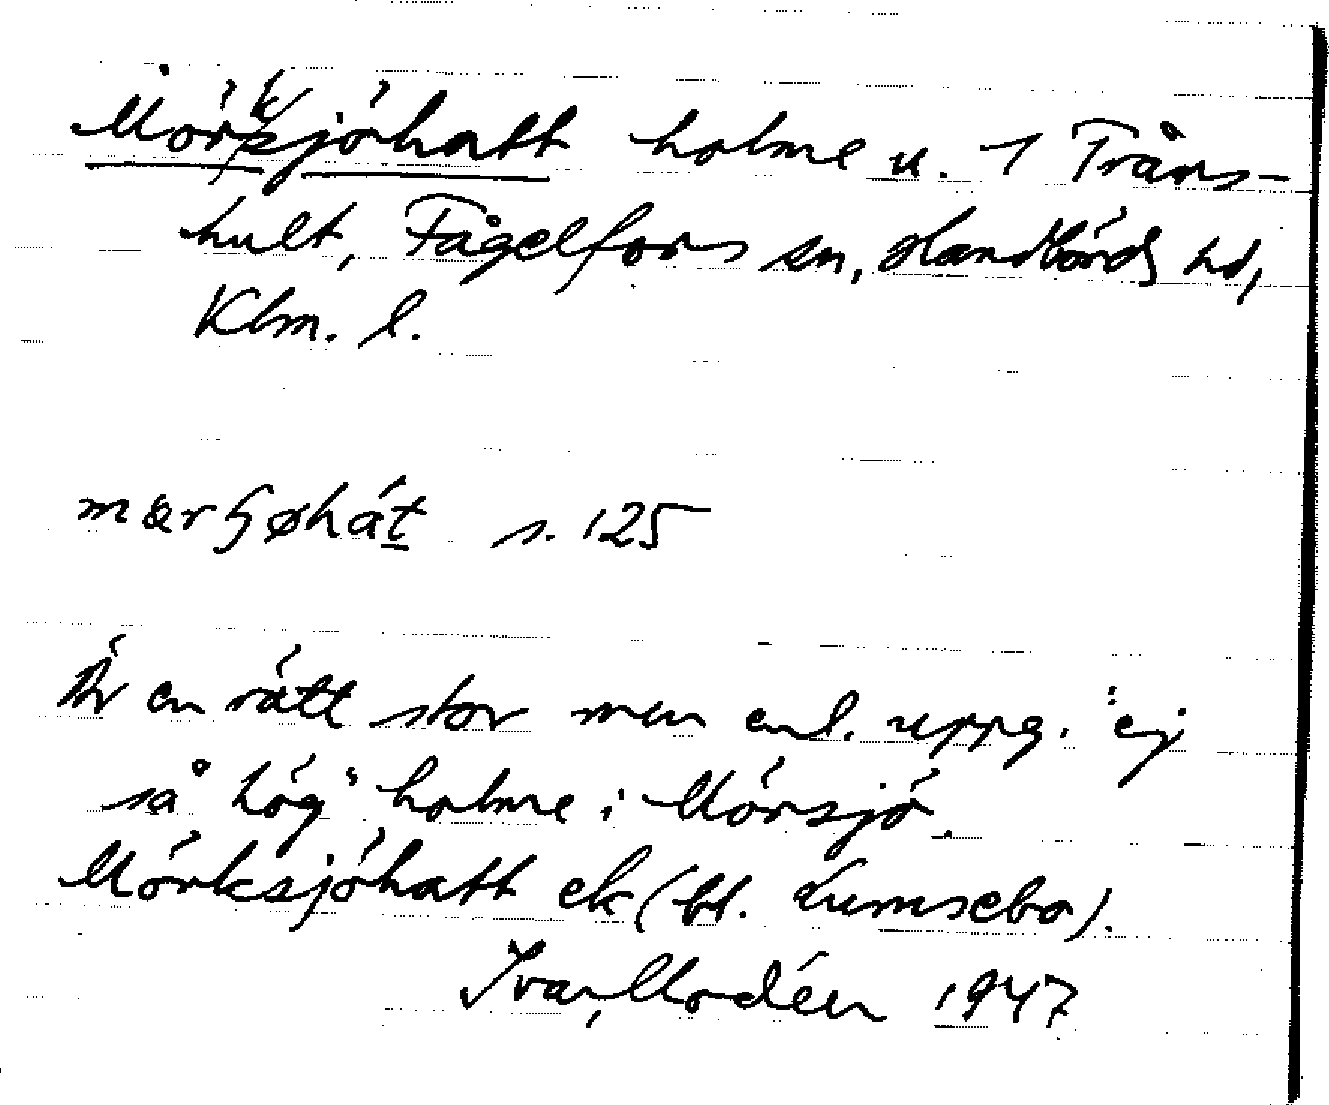 Mörksjöhatt holme u. 1 Tråns-
hult, Fågelfors sn, Handbörds hd,
Klm. l.
mœrʃøhát s. 125
Är en rätt stor men enl. uppg. "ej
så hög" holme i Mörsjö.
Mörksjöhatt ek (bl. Lumsebo).
Ivar Modéer 1947